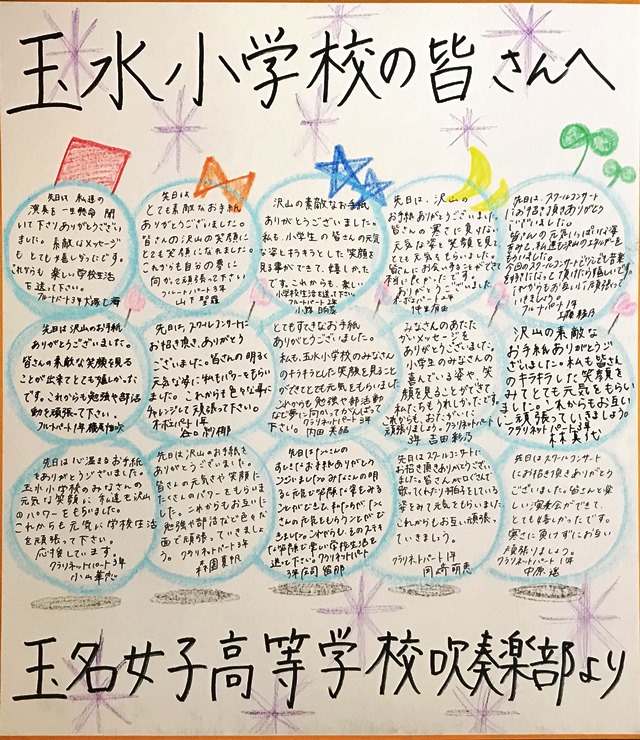 玉水小学校の皆さんへ
先日は 私達の
演奏を一生懸命 聞
いて下さりありがとうござい
ました。素敵なメッセージ
もとても嬉しかったです。
これからも 楽しい学校生活
を送って下さい。
フルートパート3年
先日は
とても素敵なお手紙
ありがとうございました。
皆さんの沢山の笑顔に
とても笑顔になれました。
これからも自分の夢に
向かって頑張って下さい
フルートパート3年
沢山の素敵なお手紙
ありがとうございました。
私も、小学生の皆さんの元気
な姿とキラキラとした笑顔
を見る事ができて、嬉しかった
です。これからも、楽しい
小学校生活を送って下さい。
フルートパート2年
先日は、沢山の
お手紙ありがとうございました。
皆さんの寒さに負けない
元気な姿と笑顔を見て、
とても元気をもらいました。
皆にお会いすることができて
本当に良かったです。
ありがとうございました。
先日は、スクールコンサート
にお招き頂きありがとう
ございました。
皆さんの元気いっぱいな姿
をみて、私達も沢山のエネルギーを
もらいました。
フルートパート1年
先日は沢山のお手紙
ありがとうございました。
皆さんの素敵な笑顔を見る
ことが出来てとても嬉しかった
です。これからも勉強や部活
動を頑張って下さい。
フルートパート1年
先日は、スクールコンサートに
お招き頂き、ありがとう
ございました。皆さんの明るく
元気な姿に私もパワーをもらい
ました。これからも色々な事に
チャレンジして頑張って下さい。
とてもすてきなお手紙
ありがとうございました。
私も、玉水小学校のみなさん
のキラキラした笑顔を見ること
ができてとても元気をもらいました
これからも 勉強や部活動
など夢に向かってがんばって
クラリネットパート3年
内田 美結
みなさんのあたた
かいメッセージを
ありがとうございました。
小学生のみなさんの
喜んでいる姿や、笑
顔を見ることができて、
私たちもうれしかったです。
これからも、おたがいに
頑張りましょう。クラリネットパート
3年 吉田 彩乃
沢山の素敵な
お手紙ありがとうござ
いました。私も皆さん
のキラキラした笑顔を
みてとても元気をもらい
ました。これからもお互い
に頑張っていきましょう。
クラリネットパート3年
先日は心温まるお手紙
をありがとうございました。
玉水小学校のみなさんの
元気な笑顔に私達も沢山
のパワーをもらいました。
これからも元気に学校生活
を頑張って下さい。
応援しています。
クラリネットパート3年
先日は沢山のお手紙を
ありがとうございました。
皆さんの元気や笑顔に
たくさんのパワーをもらいま
した。これからもお互いに
勉強や部活など色々な
面で頑張っていきましょ
う。 クラリネットパート3年
先日はたくさんの
すてきなお手紙ありがとう
ございました
先日はスクールコンサートに
お招き頂きありがとうござい
ました。皆さんがよろこんで
これからもお互い頑張っ
ていきましょう。
クラリネットパート1年
岡崎 萌恵
先日はスクールコンサート
にお招き頂きありがとう
ございました。皆さんと楽し
い演奏会ができて、
とても嬉しかったです。
寒さに負けずにお互い
頑張りましょう。
クラリネットパート1年
玉名女子高等学校吹奏楽部より